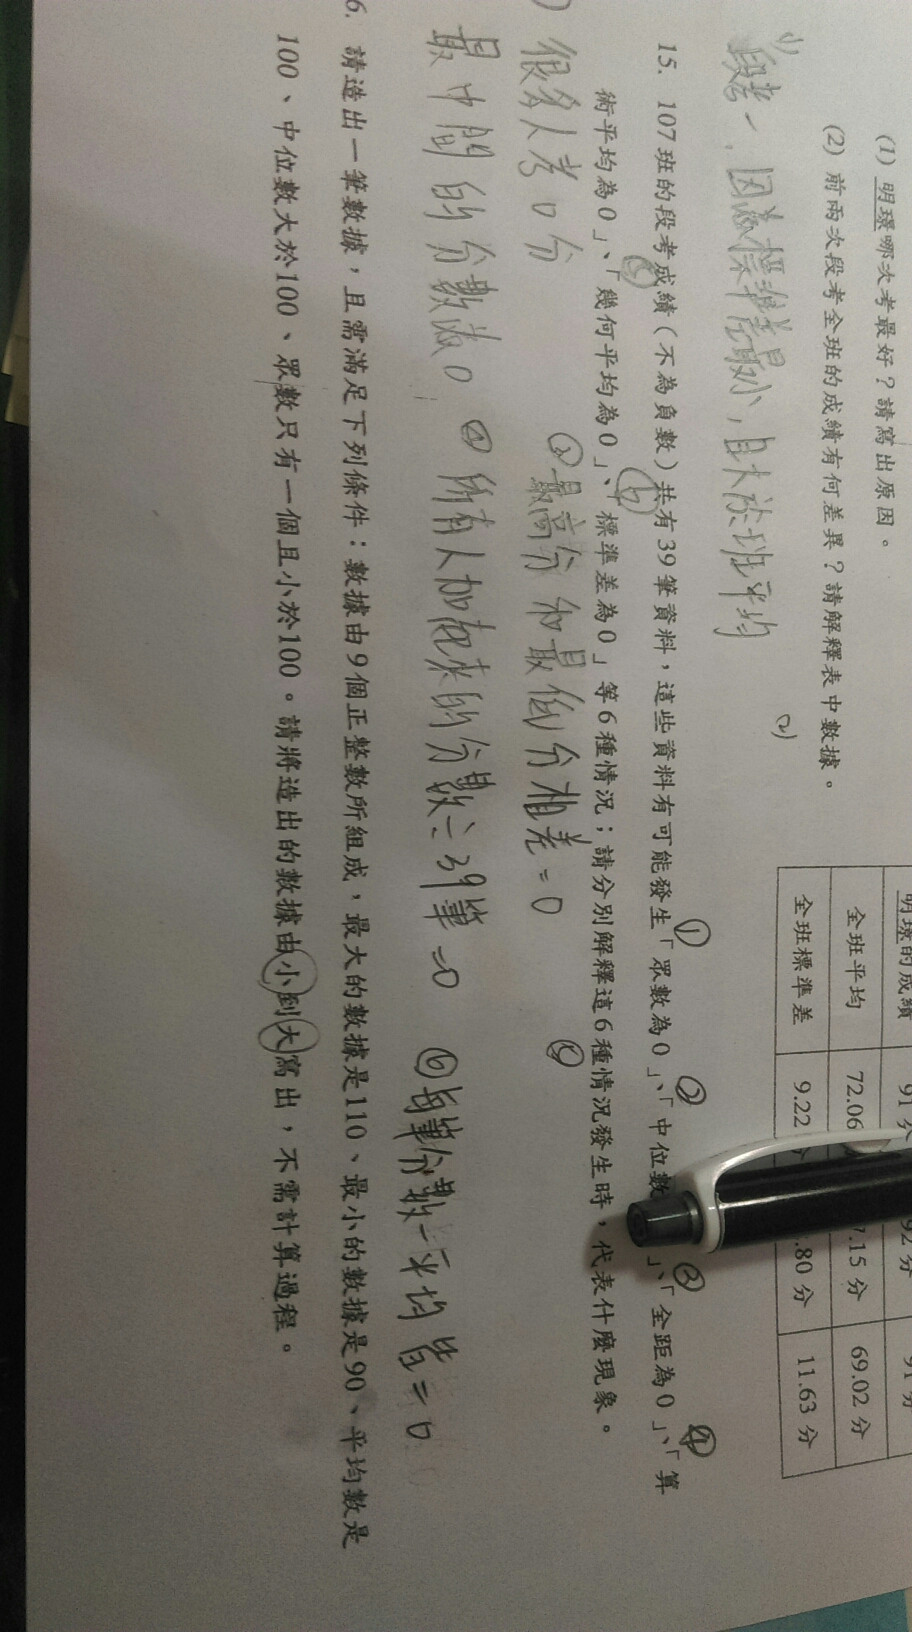 (1) 明璟哪次考最好？請寫出原因。
(2) 前兩次段考全班的成績有何差異？請解釋表中數據。
明璟的成績 91 92分 91分
全班平均 72.06 7.15分 69.02分
全班標準差 9.22 .80分 11.63分
(1)
段考一，因為標準差最小，且大於班平均
(2)
15. 107班的段考成績（不為負數）共有39筆資料，這些資料有可能發生「眾數為0」、「中位數」、「全距為0」、「算
術平均為0」、「幾何平均為0」、「標準差為0」等6種情況；請分別解釋這6種情況發生時，代表什麼現象。
① ② ③ ④ ⑤ ⑥
很多人考0分 ③最高分和最低分相差=0 ⑤
最中間的分數為0 ④所有人加起來的分數÷39筆=0 ⑥每筆分數-平均皆=0
6. 請造出一筆數據，且需滿足下列條件：數據由9個正整數所組成，最大的數據是110、最小的數據是90、平均數是
100、中位數大於100、眾數只有一個且小於100。請將造出的數據由小到大寫出，不需計算過程。